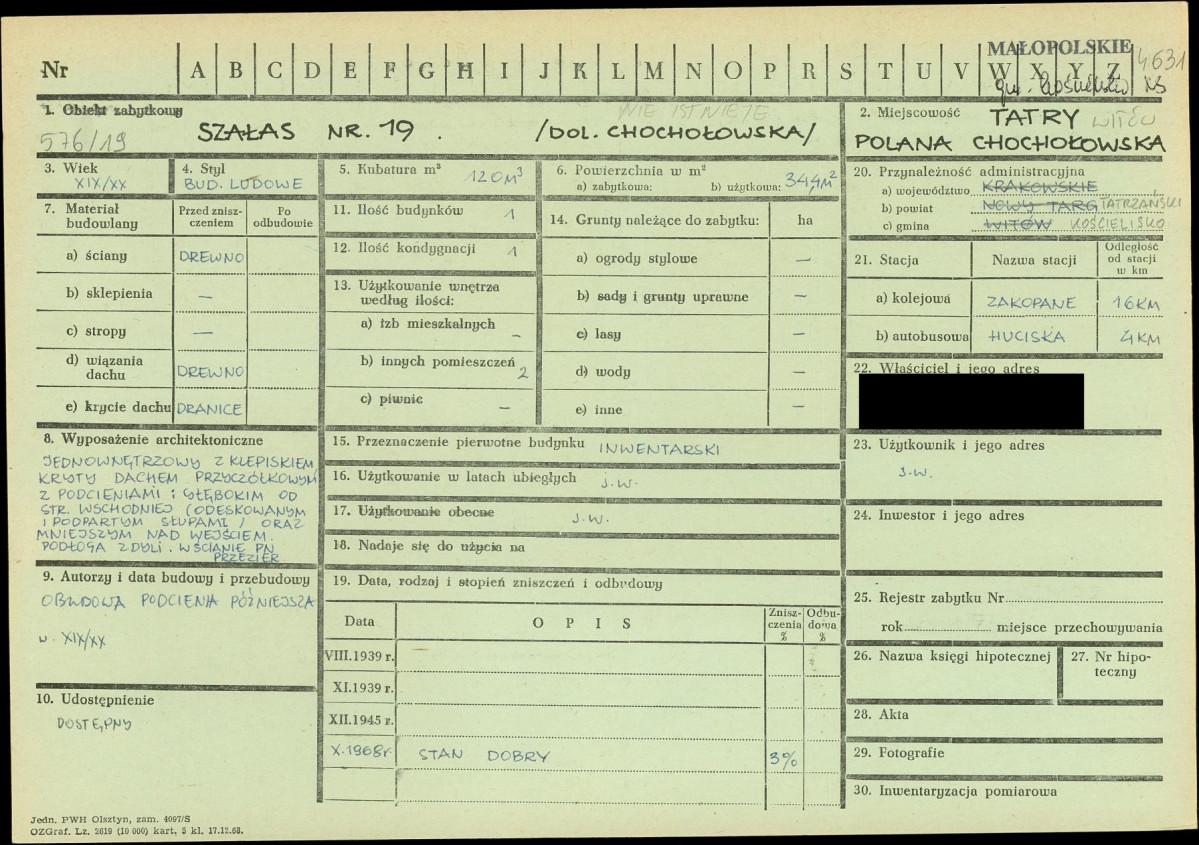 MAŁOPOLSKIE
4631
Nr A B C D E F G H I J K L M N O P R S T U V W X Y Z
gm. Kościelisko
1. Obiekt zabytkowy
NIE ISTNIEJE
576/19
SZAŁAS NR. 19. /DOL. CHOCHOŁOWSKA/
2. Miejscowość TATRY WITÓW
POLANA CHOCHOŁOWSKA
3. Wiek
XIX/XX
4. Styl
BUD. LUDOWE
5. Kubatura m³ 120M³
6. Powierzchnia w m²
a) zabytkowa: b) użytkowa: 34,4M²
7. Materiał budowlany
Przed zniszczeniem
Po odbudowie
a) ściany DREWNO
b) sklepienia —
c) stropy —
d) wiązania dachu DREWNO
e) krycie dachu DRANICE
8. Wyposażenie architektoniczne
JEDNOWNĘTRZOWY Z KLEPISKIEM,
KRYTY DACHEM PRZYCZÓŁKOWYM
Z PODCIENIAMI: GŁĘBOKIM OD
STR. WSCHODNIEJ (ODESKOWANYM
I PODPARTYM SŁUPAMI / ORAZ
MNIEJSZYM NAD WEJŚCIEM.
PODŁOGA Z DYLI. W ŚCIANIE PN
PRZEZIER
9. Autorzy i data budowy i przebudowy
OBUDOWA PODCIENIA PÓŹNIEJSZA
w. XIX/XX
10. Udostępnienie
DOSTĘPNY
11. Ilość budynków 1
12. Ilość kondygnacji 1
13. Użytkowanie wnętrza
według ilości:
a) izb mieszkalnych -
b) innych pomieszczeń 2
c) piwnic —
14. Grunty należące do zabytku: ha
a) ogrody stylowe —
b) sady i grunty uprawne —
c) lasy —
d) wody —
e) inne —
15. Przeznaczenie pierwotne budynku INWENTARSKI
16. Użytkowanie w latach ubiegłych j.w.
17. Użytkowanie obecne J.W.
18. Nadaje się do użycia na
19. Data, rodzaj i stopień zniszczeń i odbudowy
Data
OPIS
Zniszczenia %
Odbudowa %
VIII.1939 r.
XI.1939 r.
XII.1945 r.
X.1968r. STAN DOBRY 3%
20. Przynależność administracyjna
a) województwo KRAKOWSKIE
b) powiat NOWY TARG TATRZAŃSKI
c) gmina WITÓW KOŚCIELISKO
21. Stacja
Nazwa stacji
Odległość od stacji w km
a) kolejowa ZAKOPANE 16KM
b) autobusowa HUCISKA 4KM
22. Właściciel i jego adres
23. Użytkownik i jego adres
J.W.
24. Inwestor i jego adres
25. Rejestr zabytku Nr
rok miejsce przechowywania
26. Nazwa księgi hipotecznej
27. Nr hipoteczny
28. Akta
29. Fotografie
30. Inwentaryzacja pomiarowa
Jedn. PWH Olsztyn, zam. 4097/S
OZGraf. Lz. 2619 (10 000) kart. 5 kl. 17.12.68.